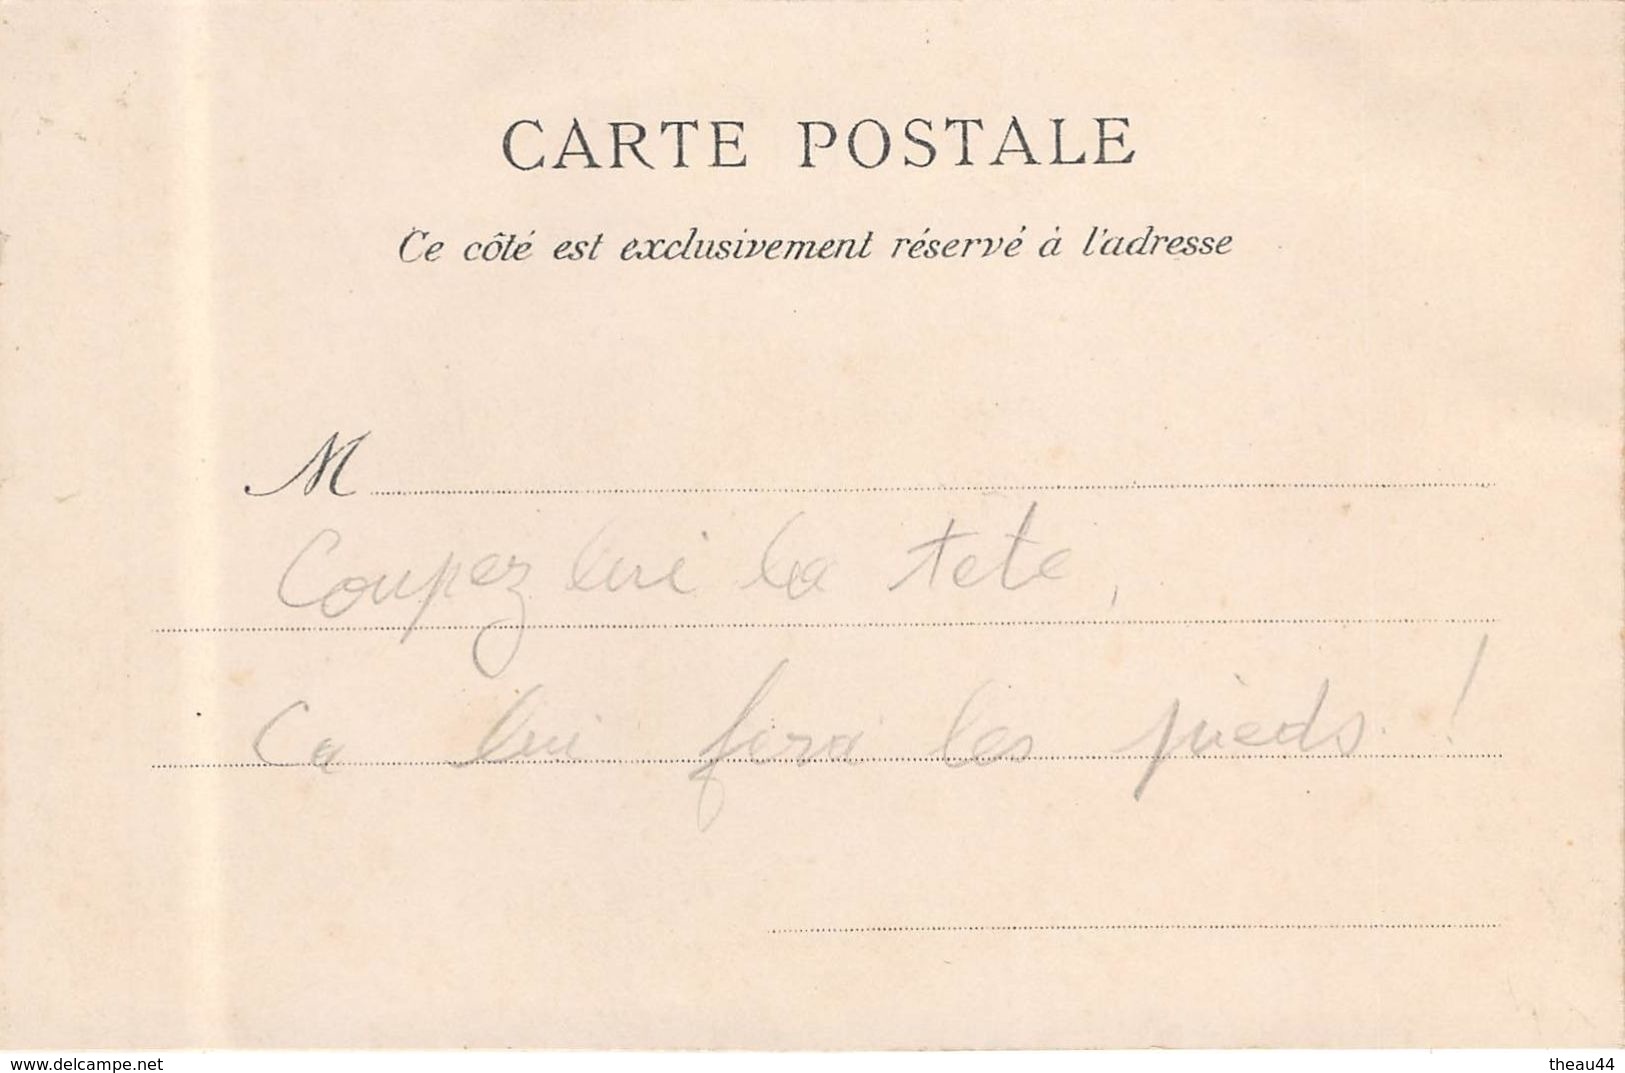 CARTE POSTALE
Ce côté est exclusivement réservé à l'adresse
M
Coupez lui la tete,
Ca lui fera les pieds !
www.delcampe.net
theau44